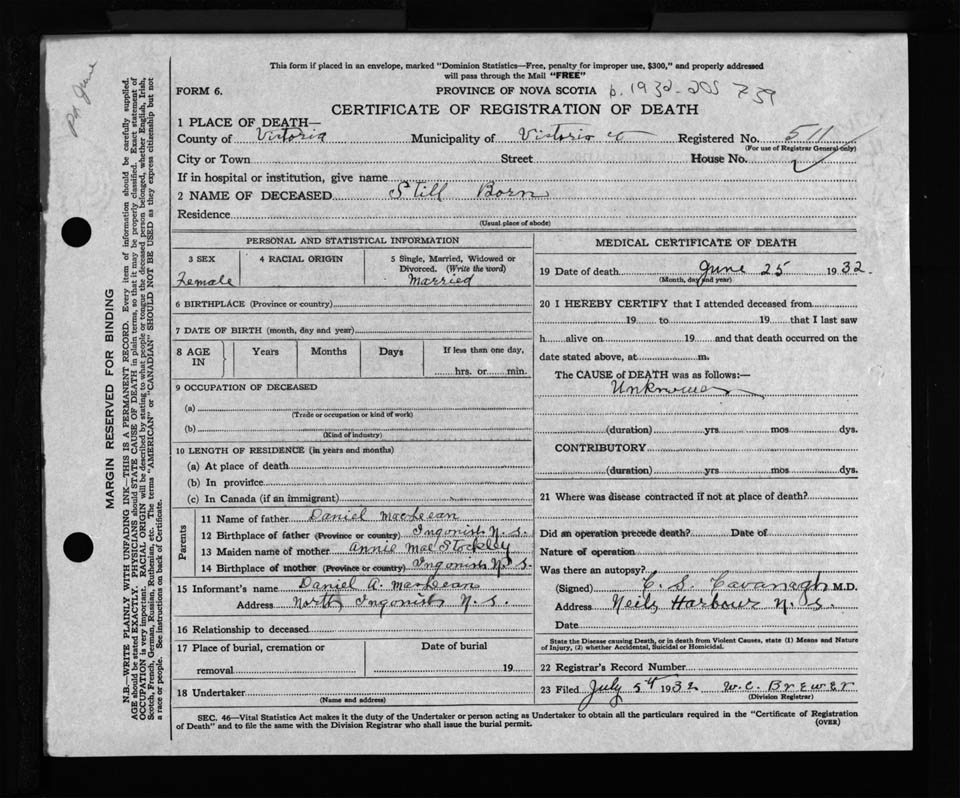 Pd June
This form if placed in an envelope, marked "Dominion Statistics—Free, penalty for improper use, $300," and properly addressed
will pass through the Mail "FREE"
FORM 6.
PROVINCE OF NOVA SCOTIA p. 1932-205 739
CERTIFICATE OF REGISTRATION OF DEATH
1 PLACE OF DEATH—
County of Victoria Municipality of Victoria Co Registered No. 511
(For use of Registrar General only)
City or Town Street House No.
If in hospital or institution, give name
2 NAME OF DECEASED Still Born
Residence
(Usual place of abode)
PERSONAL AND STATISTICAL INFORMATION
3 SEX
Female
4 RACIAL ORIGIN
5 Single, Married, Widowed or
Divorced. (Write the word)
Married
6 BIRTHPLACE (Province or country)
7 DATE OF BIRTH (month, day and year)
8 AGE
IN
Years
Months
Days
If less than one day,
hrs. or min.
9 OCCUPATION OF DECEASED
(a)
(Trade or occupation or kind of work)
(b)
(Kind of industry)
10 LENGTH OF RESIDENCE (in years and months)
(a) At place of death
(b) In province
(c) In Canada (if an immigrant)
Parents
11 Name of father Daniel MacLean
12 Birthplace of father (Province or country) Ingonish N. S.
13 Maiden name of mother Annie Mae Stockley
14 Birthplace of mother (Province or country) Ingonish N. S.
15 Informant's name Daniel A. MacLean
Address North Ingonish N. S.
16 Relationship to deceased
17 Place of burial, cremation or
removal
Date of burial
19
18 Undertaker
(Name and address)
MEDICAL CERTIFICATE OF DEATH
19 Date of death June 25 1932.
(Month, day and year)
20 I HEREBY CERTIFY that I attended deceased from
19 to 19 that I last saw
h alive on 19 and that death occurred on the
date stated above, at m.
The CAUSE of DEATH was as follows:—
Unknown
(duration) yrs mos dys.
CONTRIBUTORY
(duration) yrs mos dys.
21 Where was disease contracted if not at place of death?
Did an operation precede death? Date of
Nature of operation
Was there an autopsy?
(Signed) C. S. Cavanagh M.D.
Address Neils Harbour N. S.
Date
State the Disease causing Death, or in death from Violent Causes, state (1) Means and Nature
of Injury, (2) whether Accidental, Suicidal or Homicidal.
22 Registrar's Record Number
23 Filed July 5th 1932 W. C. BREWER
(Division Registrar)
SEC. 46—Vital Statistics Act makes it the duty of the Undertaker or person acting as Undertaker to obtain all the particulars required in the "Certificate of Registration
of Death" and to file the same with the Division Registrar who shall issue the burial permit.
(OVER)
MARGIN RESERVED FOR BINDING
N.B.—WRITE PLAINLY WITH UNFADING INK—THIS IS A PERMANENT RECORD. Every item of information should be carefully supplied.
AGE should be stated EXACTLY. PHYSICIANS should STATE CAUSE OF DEATH in plain terms, so that it may be properly classified. Exact statement of
OCCUPATION is very important. RACIAL ORIGIN will be described by stating to what people or tongue the deceased person belonged, whether English, Irish,
Scotch, French, German, Russian, Ruthenian, etc. The terms "AMERICAN" or "CANADIAN" SHOULD NOT BE USED as they express citizenship but not
a race or people. See instructions on back of Certificate.